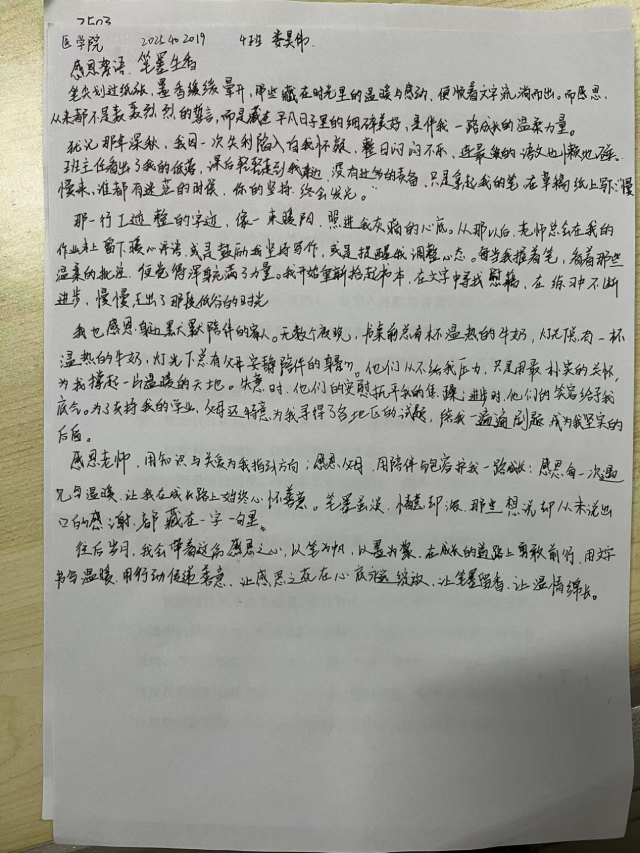 医学院 2025402019 4班 娄昊伟
感恩寄语·笔墨生香
笔尖划过纸张，墨香缓缓晕开，那些藏在时光里的温暖与感动，便顺着文字流淌而出。而感恩，
从来都不是轰轰烈烈的誓言，而是藏进平凡日子里的细碎美好，是伴我一路成长的温柔力量。
犹记那年深秋，我因一次失利陷入自我怀疑，整日闷闷不乐，连最爱的语文也
班主任看出了我的低落，课后轻轻走到我身边，没有过多的责备，只是拿起我的笔，在草稿纸上写下“慢
慢来，谁都有迷茫的时候，你的坚持终会发光。”
那一行工整的字迹，像一束暖阳，照进我灰暗的心底。从那以后，老师总会在我的
作业本上留下暖心评语，或是鼓励我坚持写作，或是提醒我调整心态。每当我握着笔，看着那些
温柔的批注，便觉得浑身充满了力量。我开始重新拾起书本，在文字中寻找慰藉，在练习中不断
进步，慢慢走出了那段低谷的时光
我也感恩身边默默陪伴的家人。无数个夜晚，书桌前总有一杯温热的牛奶，灯光下总有一杯
温热的牛奶，灯光下总有父母安静陪伴的身影。他们从不给我压力，只是用最朴实的关怀，
为我撑起一片温暖的天地。失意时，他们的安慰抚平我的焦躁；进步时，他们的笑容给予我
底气。为了支持我的学业，父母还特意为我寻得了各地区的试题，陪我一遍遍刷题，成为我坚实的
后盾。
感恩老师，用知识与关爱为我指引方向；感恩父母，用陪伴与包容护我一路成长；感恩每一次遇
见与温暖，让我在成长路上始终心怀善意。笔墨虽淡，情意却浓，那些想说却从未说出
口的感谢，都藏在一字一句里。
往后岁月，我会带着这份感恩之心，以笔为帆，以墨为桨，在成长的道路上勇敢前行，用文字
书写温暖，用行动传递善意，让感恩之花在心底永远绽放，让笔墨留香，让温情绵长。